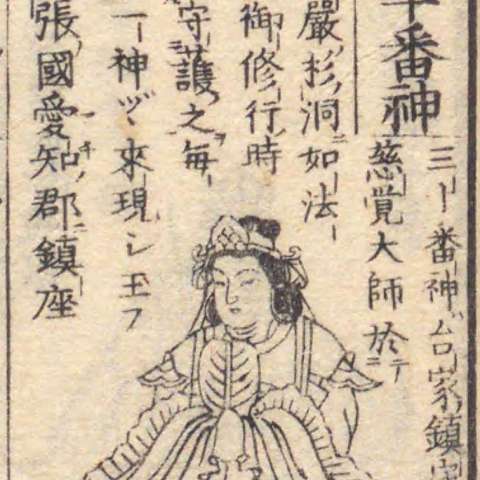 番神
三ー番神台家鎮
慈覚大師於テ
嚴杉洞ニ如法ー
御修行時
守護之毎
一神ヅ丶來現シ玉フ
張國愛知郡鎮座